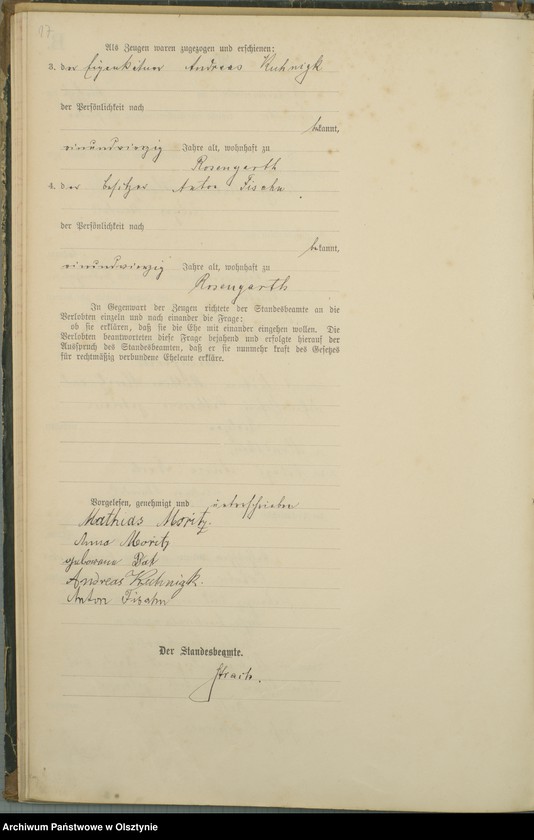 17
Als Zeugen waren zugezogen und erschienen:
3. der Eigenkätner Andreas Kuhnigk
der Persönlichkeit nach
bekannt,
einundvierzig Jahre alt, wohnhaft zu
Rosengarth
4. der Besitzer Anton Fischn.
der Persönlichkeit nach
bekannt,
einundvierzig Jahre alt, wohnhaft zu
Rosengarth
In Gegenwart der Zeugen richtete der Standesbeamte an die
Verlobten einzeln und nach einander die Frage:
ob sie erklären, daß sie die Ehe mit einander eingehen wollen. Die
Verlobten beantworteten diese Frage bejahend und erfolgte hierauf der
Ausspruch des Standesbeamten, daß er sie nunmehr kraft des Gesetzes
für rechtmäßig verbundene Eheleute erkläre.
Vorgelesen, genehmigt und unterschrieben
Mathias Moritz.
Anna Moritz
geborene
Andreas Kuhnigk.
Anton
Der Standesbeamte.
Archiwum Państwowe w Olsztynie